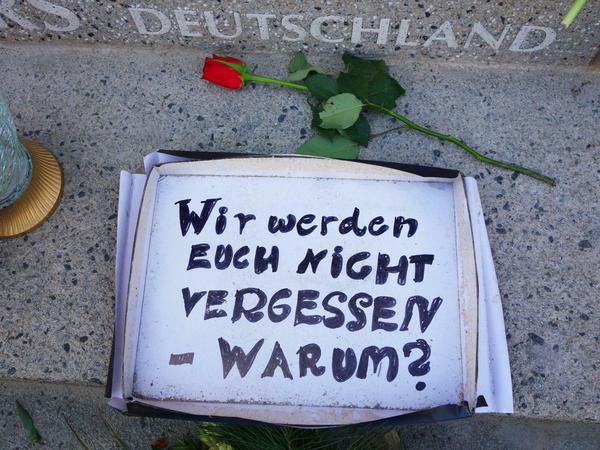 RS DEUTSCHLAND
Wir werden
EUCH NiCHT
VERGESSEN
- WARUM?